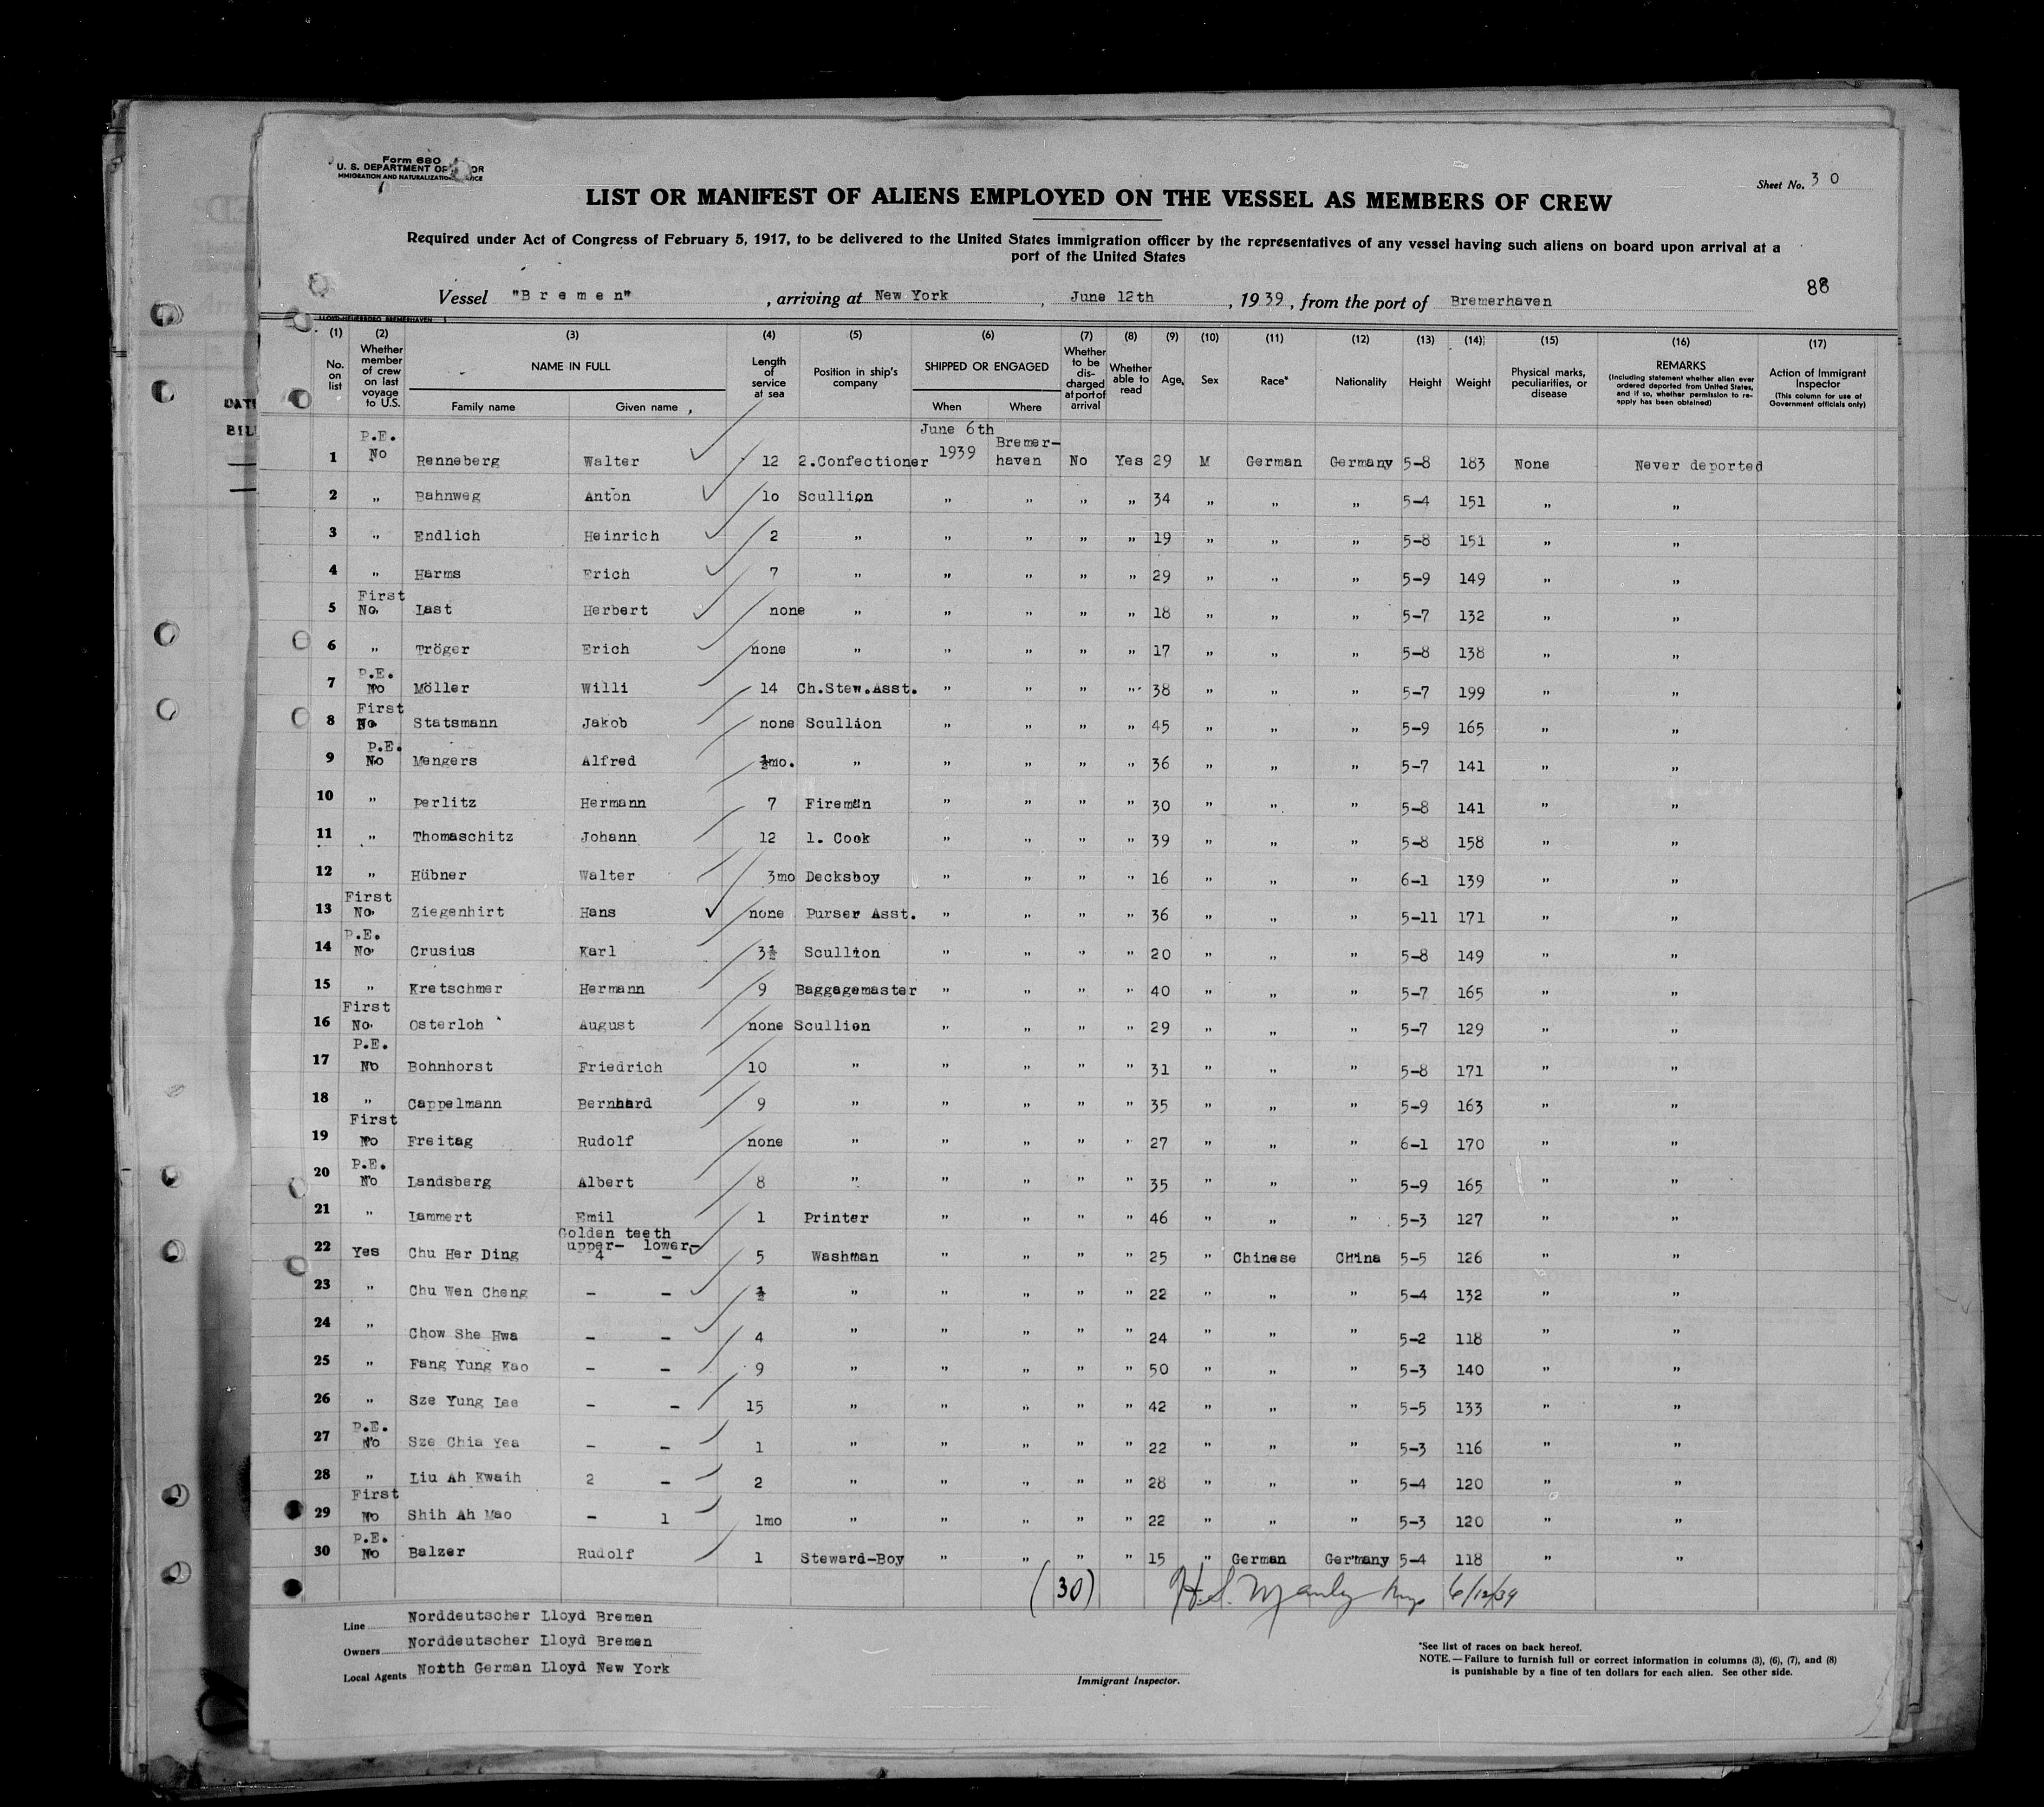 Form 680
U. S. DEPARTMENT OF
IMMIGRATION AND NATURALIZATION
Sheet No. 30
LIST OR MANIFEST OF ALIENS EMPLOYED ON THE VESSEL AS MEMBERS OF CREW
Required under Act of Congress of February 5, 1917, to be delivered to the United States immigration officer by the representatives of any vessel having such aliens on board upon arrival at a
port of the United States
88
Vessel "Bremen", arriving at New York, June 12th, 1939, from the port of Bremerhaven
(1) (2) (3) (4) (5) (6) (7) (8) (9) (10) (11) (12) (13) (14) (15) (16) (17)
No. on list
Whether member of crew on last voyage to U.S.
NAME IN FULL
Family name Given name
Length of service at sea
Position in ship's company
SHIPPED OR ENGAGED
When Where
Whether to be discharged at port of arrival
Whether able to read
Age
Sex
Race*
Nationality
Height
Weight
Physical marks, peculiarities, or disease
REMARKS
(Including statement whether alien ever ordered deported from United States, and if so, whether permission to reapply has been obtained)
Action of Immigrant Inspector
(This column for use of Government officials only)
1 P.E. No Renneberg Walter 12 2.Confectioner June 6th 1939 Bremerhaven No Yes 29 M German Germany 5-8 183 None Never deported
2 " Bahnweg Anton 10 Scullion " " " " 34 " " " 5-4 151 " "
3 " Endlich Heinrich 2 " " " " " 19 " " " 5-8 151 " "
4 " Harms Erich 7 " " " " " 29 " " " 5-9 149 " "
5 First No. Last Herbert none " " " " " 18 " " " 5-7 132 " "
6 " Tröger Erich none " " " " " 17 " " " 5-8 138 " "
7 P.E. No Möller Willi 14 Ch.Stew.Asst. " " " " 38 " " " 5-7 199 " "
8 First No. Statsmann Jakob none Scullion " " " " 45 " " " 5-9 165 " "
9 P.E. No Mengers Alfred ½mo. " " " " " 36 " " " 5-7 141 " "
10 " Perlitz Hermann 7 Fireman " " " " 30 " " " 5-8 141 " "
11 " Thomaschitz Johann 12 1. Cook " " " " 39 " " " 5-8 158 " "
12 " Hübner Walter 3mo Decksboy " " " " 16 " " " 6-1 139 " "
13 First No. Ziegenhirt Hans none Purser Asst. " " " " 36 " " " 5-11 171 " "
14 P.E. No. Crusius Karl 3½ Scullion " " " " 20 " " " 5-8 149 " "
15 " Kretschmer Hermann 9 Baggagemaster " " " " 40 " " " 5-7 165 " "
16 First No. Osterloh August none Scullion " " " " 29 " " " 5-7 129 " "
17 P.E. No Bohnhorst Friedrich 10 " " " " " 31 " " " 5-8 171 " "
18 " Cappelmann Bernhard 9 " " " " " 35 " " " 5-9 163 " "
19 First No Freitag Rudolf none " " " " " 27 " " " 6-1 170 " "
20 P.E. No Landsberg Albert 8 " " " " " 35 " " " 5-9 165 " "
21 " Lammert Emil 1 Printer " " " " 46 " " " 5-3 127 " "
Golden teeth
upper- lower-
22 Yes Chu Her Ding 4 - 5 Washman " " " " 25 " Chinese China 5-5 126 " "
23 " Chu Wen Cheng - - ½ " " " " " 22 " " " 5-4 132 " "
24 " Chow She Hwa - - 4 " " " " " 24 " " " 5-2 118 " "
25 " Fang Yung Kao - - 9 " " " " " 50 " " " 5-3 140 " "
26 " Sze Yung Lee - - 15 " " " " " 42 " " " 5-5 133 " "
27 P.E. No Sze Chia Yea - - 1 " " " " " 22 " " " 5-3 116 " "
28 " Liu Ah Kwaih 2 - 2 " " " " " 28 " " " 5-4 120 " "
29 First No Shih Ah Mao - 1 1mo " " " " " 22 " " " 5-3 120 " "
30 P.E. No Balzer Rudolf 1 Steward-Boy " " " " 15 " German Germany 5-4 118 " "
(30) H. S. Manly 6/12/39
Line Norddeutscher Lloyd Bremen
Owners Norddeutscher Lloyd Bremen
Local Agents North German Lloyd New York
Immigrant Inspector.
*See list of races on back hereof.
NOTE.—Failure to furnish full or correct information in columns (3), (6), (7), and (8)
is punishable by a fine of ten dollars for each alien. See other side.